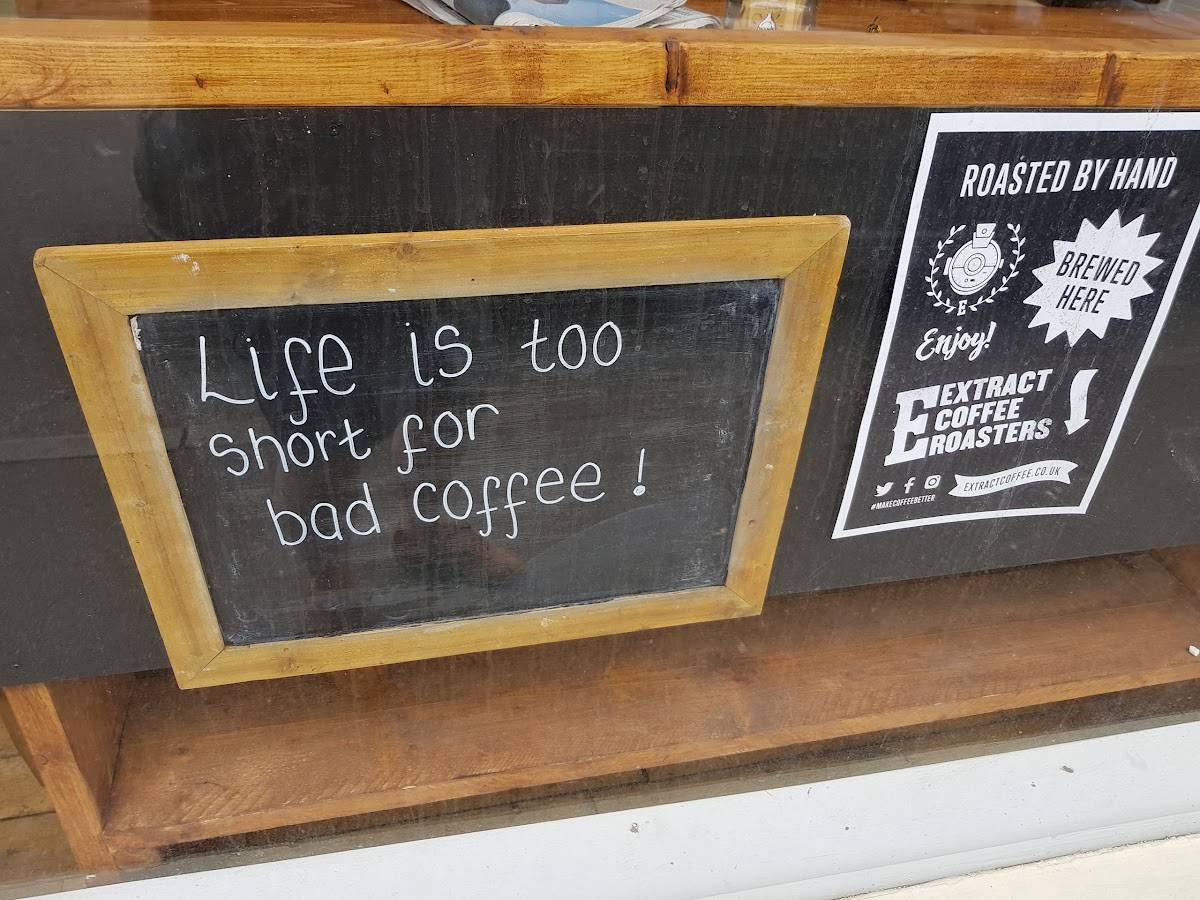 Life is too
short for
bad coffee !
ROASTED BY HAND
E
BREWED
HERE
Enjoy!
E EXTRACT
COFFEE
ROASTERS
EXTRACTCOFFEE.CO.UK
#MAKECOFFEEBETTER